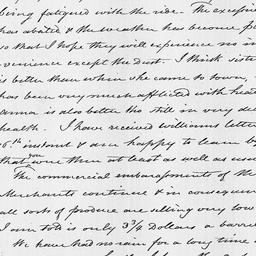 being fatigued with the ride. The excessive
has abated & the weather has become p
so that I hope they will experience no in
venience except the dust. I think sister
is better than when she came to town,
has been very much afflicted with head
anna is also better tho still in very de
health. I have received williams letter
6.th instant & am happy to learn by
that you were then at least as well as usu
The commercial embarassments of the
Merchants continue & in consequen
all sorts of produce are selling very low
I am told is only 3¾ Dollars a barre
We have had no rain for a long time